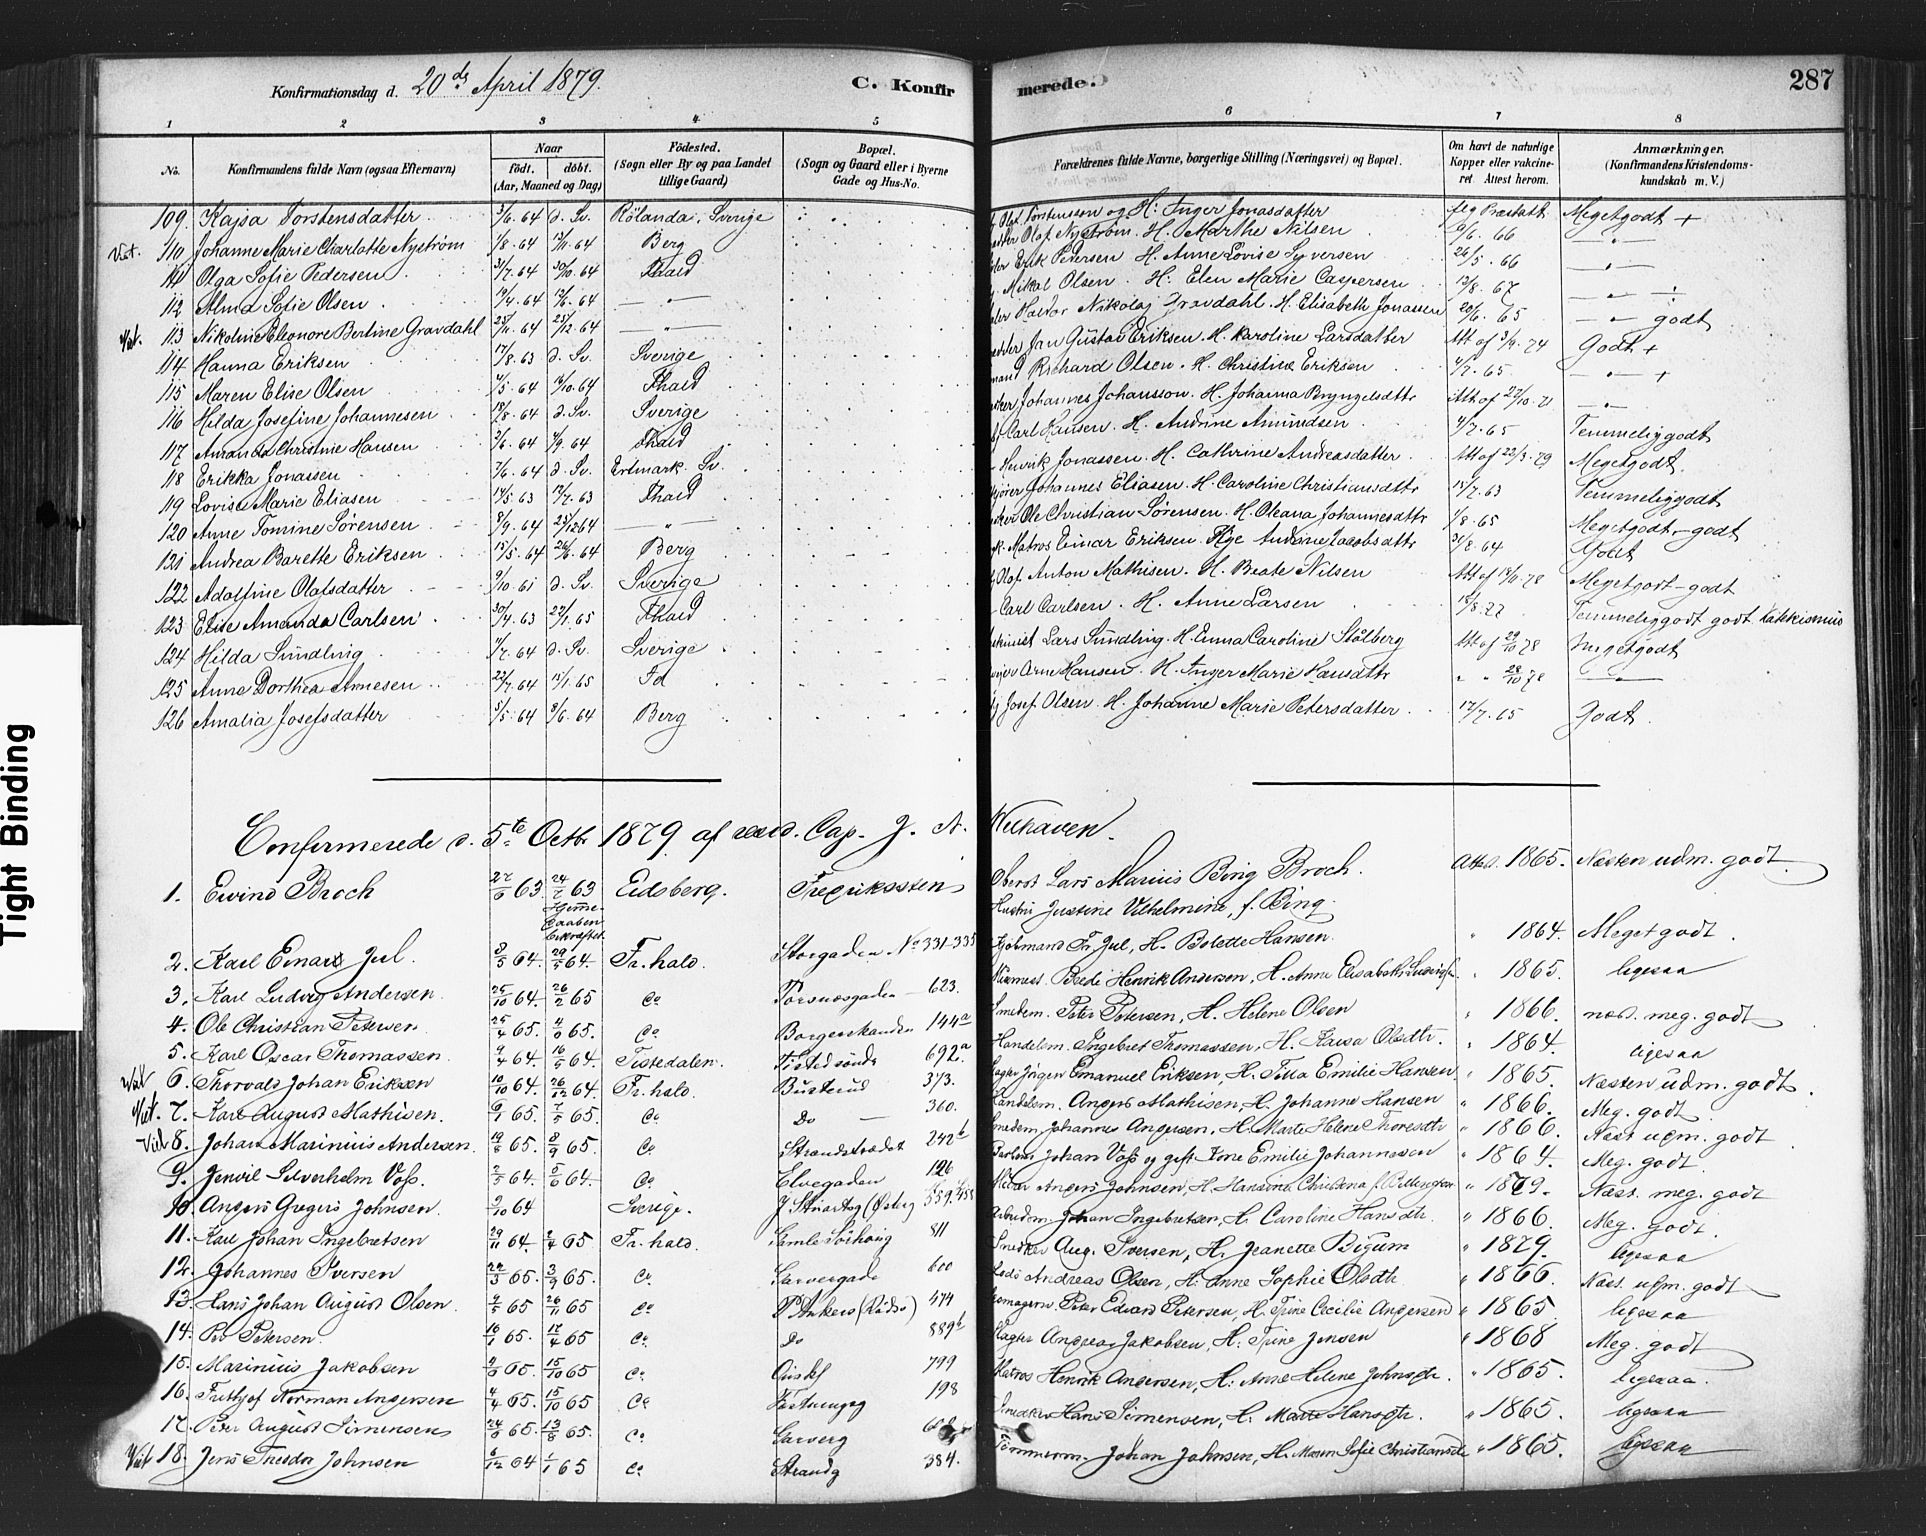 Konfirmationsdag d. 20de April 1879. C. Konfir merede. 287
1 2 3 4 5 6 7 8
No. Konfirmandens fulde Navn (ogsaa Efternavn) Naar født. døbt. (Aar, Maaned og Dag) Födested. (Sogn eller By og paa Landet tillige Gaard) Bopæl. (Sogn og Gaard eller i Byerne Gade og Hus-No. Forældrenes fulde Navne, borgerlige Stilling (Næringsvei) og Bopæl. Om havt de naturlige Kopper eller vakcineret. Attest herom. Anmærkninger. (Konfirmandens Kristendomskundskab m. V.)
109. Kajsa Torstensdatter 3/6. 64 d. Sv. Rölanda, Sverige Olof Torstensson og H. Inger Jonasdatter Meget godt +
Vat. 110 Johanne Marie Charlotte Nyström 1/8. 64 13/11. 64 Berg Olof Nyström. H. Marthe Nilsen 9/6. 66 — " —
111 Olga Sofie Pedersen 31/7. 64 30/10. 64 Fhald Erik Pedersen H. Anne Lovise Syversen 26/5. 66 — " —
112 Alma Sofie Olsen 19/4. 64 12/6. 64 — " — Mikal Olsen. H. Elen Marie Caspersen 12/8. 67 — " —
Vat. 113 Nikoline Eleonore Bertine Gravdahl 23/11. 64 25/12. 64 — " — Haldor Nikolaj Gravdahl. H. Elisabeth Jonassen 20/6. 65 — " — godt
114 Hanna Eriksen 17/8. 63 d. Sv. Sverige Jan Gustav Eriksen. H. Karoline Larsdatter Att af 3/9. 74 Godt +
115 Maren Elise Olsen 4/5. 64 16/10. 64 Fhald Richard Olsen. H. Christine Eriksen 4/7. 65 — " — +
116 Hilda Josefine Johannesen 18/8. 64 d. Sv. Sverige Johannes Johansson. H. Johanna Bryngelsdttr Att af 27/10. 71 — " —
117 Amanda Christine Hansen 2/6. 64 4/9. 64 Fhald Carl Hansen. H. Andrine Amundsen 4/7. 65 Temmelig godt
118 Erikka Jonassen 7/6. 64 d. Sv. Ertmark. Sv. Henrik Jonassen. H. Cathrine Andreasdatter Att af 22/3. 79 Meget godt.
119 Lovise Marie Eliasen 14/5. 63 12/7. 63 Fhald Johannes Eliasen. H. Caroline Christiansdttr 15/7. 63 Temmelig godt
120 Anne Tomine Sørensen 8/9. 64 25/12 64 — " — Ole Christian Sørensen. H. Oleana Johannesdttr 1/8. 65 Meget godt - godt
121 Andrea Barette Eriksen 15/5. 64 26/6. 64 Berg Matros Einar Eriksen. Pige Andrine Jacobsdttr 31/8. 64 Godt
122 Adolfine Olafsdatter 9/10. 61 d. Sv. Sverige Olof Anton Mathisen. H. Beate Nilsen Att af 14/11. 78 Meget godt - godt
123 Elise Amanda Carlsen 30/4. 63 22/1. 65 Fhald Carl Carlsen. H. Anne Larsen 15/8. 77 Temmelig godt godt Katekismus
124 Hilda Sundling 4/7. 64 d. Sv. Sverige Lars Sundling. H. Emma Caroline Stolberg Att af 29/10 78 Meget godt
125 Anne Dorthea Arnesen 22/7. 64 15/1. 65 Id Arne Hansen. H. Inger Marie Hansdttr " " 28/10 78 — " —
126 Amalia Josefsdatter 5/5. 64 8/6. 64 Berg Josef Olsen. H. Johanne Marie Petersdatter 12/7. 65 Godt.
Confirmerede d. 5te Octbr 1879 af resd. Cap. J. A. Welhaven.
1. Eivind Broch 27/6 63 24/7 63 Hjemmedaaben bekræftet Eidsberg. Fredriksten Oberst Lars Marius Bing Broch. Hustru Justine Vilhelmine, f. Bing. Atts. 1865. Næsten udm. godt
2. Karl Einar Jul. 2/5 64. 29/5 64. Fr. hald. Storgaden No 331-335 Kjøbmand Fr. Jul, H. Bolette Hansen. " 1864. Meget godt.
3. Karl Ludvig Andersen. 25/10 64. 26/2 65 Do Torsnæsgaden 623. Bernt Henrik Andersen, H. Anne Elisabeth " 1865. ligesaa
4. Ole Christian Petersen. 25/4 65. 4/6 65. Do Borgerskanden 144a Smedem. Peter Petersen, H. Helene Olsen " 1866. næs. meg. godt
5. Karl Oscar Thomassen. 9/4 64. 16/5 64. Tistedalen. Tistedsund 692a. Handelsm. Ingebret Thomassen, H. Kaisa Olsdtr. " 1864. ligesaa
Vat 6. Thorvald Johan Eriksen 10/10 64. 26/12 64. Fr. hald. Busterud 373. Slagter Jörgen Emanuel Eriksen, H. Tilla Emilie Hansen " 1865. Næsten udm. godt.
Vat. 7. Karl August Mathisen. 9/1 65. 7/5 65. Do Do — 360. Handelsm. Anders Mathisen, H. Johanne Hansen " 1866. Meg. godt
Vid 8. Johan Marinius Andersen. 19/8 65. 8/9 65. Do Strandstrædet 242b Smedem. Johannes Andersen, H. Marte Helene Thoresdtr " 1866. Næst udm. godt
9. Jenvil Silverholm Voss. 2/5 64. 5/6 64. Do Elvegaden 126 Johan Voss og gift Tine Emilie Johannessen " 1864. Meg. godt.
10. Anders Gregers Johnsen. 2/10 64 Sverige. J. Stuartsg (Österg) Anders Johnsen, H. Hansine Christina f. " 1879. Næst. meg. godt
11. Karl Johan Ingebretsen 29/11 64. 2/4 65 Fr. hald. Gamle Sörhoug 811 Arbeidsm. Johan Ingebretsen, H. Caroline Hansdtr. " 1866. Meg. godt.
12. Johannes Iversen 24/5 65. 3/9 65. Do Garvergade 600 Snedker Aug. Iversen, H. Jeanette Bigum " 1879. ligesaa
13. Hans Johan August Olsen. 2/5 65 26/11 65 Do P. Ankers (Rödsb) 474 Lods Andreas Olsen, H. Anne Sophie Olsdtr. " 1866. Næst. udm. godt
14. Per Petersen. 16/1 65. 17/4 65 Do Do 889b Skomagerm. Peter Edvard Petersen, H. Trine Cecilie Andersen " 1865 ligesaa
15. Marinius Jakobsen 2/6 65. 15/10 65 Do Ouistf 799 Slagter Andreas Jakobsen, H. Trine Jensen " 1868 Meg. godt
16. Frithjof Norman Andersen 4/4 65. 15/10 65 Do Fæstningsg 198 Matros Henrik Andersen, H. Anne Helene Johnsdtr. " 1865. ligesaa.
17. Peter August Simensen 24/6 65. 13/8 65. Do Garverg Snedker Hans Simensen, H. Marte Hansdtr. " 1865. ligesaa
Vat 18. Jens Theodor Johnsen 6/12 64 1/1 65 Do Strandg 384. Tömmerm. Johan Johnsen, H. Maren Sofie Christiansdtr " 1865. ligesaa
Tight Binding